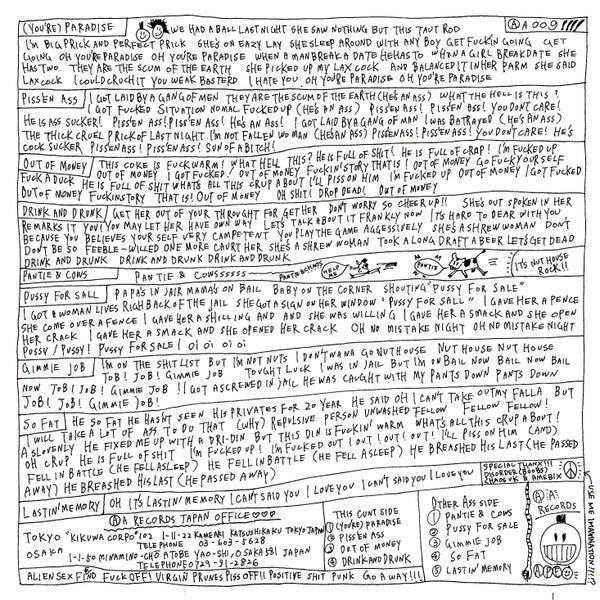 (YOU'RE) PARADISE
WE HAD A BALL LAST NIGHT SHE SAW NOTHING BUT THIS TAUT ROD
Ⓐ A 009 !!!!
I'M BIG PRICK AND PERFECT PRICK SHE'S ON EAZY LAY SHE SLEEP AROUND WITH ANY BOY GET FUCKIN GOING GET
GOING OH YOU'RE PARADISE OH YOU'RE PARADISE WHEN A MAN BREAK A DATE HE HAS TO WHEN A GIRL BREAK DATE SHE
HAS TWO THEY ARE THE SCUM OF THE EARTH SHE PICKED UP MY LAX COCK AND BALANCED IT IN HER PARM SHE SAID
LAX COCK I COULD CROCH IT YOU WEAK BASTERD I HATE YOU OH YOU'RE PARADISE OH YOU'RE PARADISE
PISS'EN ASS
I GOT LAID BY A GANG OF MEN THEY ARE THE SCUM OF THE EARTH (HE'S AN ASS) WHAT THE HELL IS THIS?
I GOT FUCKED SITUATION NOMAL FUCKED UP (HE'S AN ASS) PISS'EN ASS! PISS'EN ASS! YOU DON'T CARE!
HE IS ASS SUCKER! PISS'EN ASS! PISS'EN ASS! HE'S AN ASS! I GOT LAID BY A GANG OF MAN I WAS BETRAYED (HE'S AN ASS)
THE THICK CRUEL PRICK OF LAST NIGHT I'M NOT FALLEN WOMAN (HE'S AN ASS) PISS'EN ASS! PISS'EN ASS! YOU DON'T CARE! HE'S
COCK SUCKER PISS'EN ASS! PISS'EN ASS! SUN OF A BITCH!
OUT OF MONEY
THIS COKE IS FUCK WARM! WHAT HELL THIS? HE IS FULL OF SHIT! HE IS FULL OF CRAP! I'M FUCKED UP
OUT OF MONEY I GOT FUCKED! OUT OF MONEY FUCKIN' STORY THAT IS! OUT OF MONEY GO FUCK YOURSELF
FUCK A DUCK HE IS FULL OF SHIT WHAT'S ALL THIS CRUP ABOUT I'LL PISS ON HIM I'M FUCKED UP OUT OF MONEY I GOT FUCKED
OUT OF MONEY FUCKIN STORY THAT IS! OUT OF MONEY OH SHIT! DROP DEAD! OUT OF MONEY
DRINK AND DRUNK
GET HER OUT OF YOUR THROUGHT FOR GET HER DON'T WORRY SO CHEER UP!! SHE'S OUT SPOKEN IN HER
REMARKS IT YOU! YOU MAY LET HER HAVE OWN WAY LET'S TALK ABOUT IT FRANKLY NOW IT'S HARD TO DEAR WITH YOU
BECAUSE YOU BELIEVES YOUR SELF VERY COMPETENT YOU PLAY THE GAME AGGESSIVELY SHE'S A SHREW WOMAN DON'T
DON'T BE SO FEEBLE-WILLED ONE MORE CAURT HER SHE'S A SHREW WOMAN TOOK A LONG DRAFT A BEER LET'S GET DEAD
DRINK AND DRUNK DRINK AND DRUNK DRINK AND DRUNK
PANTIE & CONS
PANTIE & CONSSSSSS
HELP ME
PANTIE
IT'S NUT HOUSE
ROCK!!
PUSSY FOR SALL
PAPA'S IN JAIR MAMA'S ON BAIL BABY ON THE CORNER SHOUTING "PUSSY FOR SALE"
I GOT A WOMAN LIVES RIGHT BACK OF THE JAIL SHE GOT A SIGN ON HER WINDOW "PUSSY FOR SALL" I GAVE HER A PENCE
SHE COME OVER A FENCE I GAVE HER A SHILLING AND AND SHE WAS WILLING I GAVE HER A SMACK AND SHE OPEN
HER CRACK I GAVE HER A SMACK AND SHE OPENED HER CRACK OH NO MISTAKE NIGHT OH NO MISTAKE NIGHT
PUSSY! PUSSY! PUSSY FOR SALE! OI OI OI OI
GIMMIE JOB
I'M ON THE SHIT LIST BUT I'M NOT NUTS I DON'T WANA GO NUTHOUSE NUT HOUSE NUT HOUSE
JOB! JOB! GIMMIE JOB TOUGHT LUCK I WAS IN JAIL BUT I'M ON BAIL NOW BAIL NOW BAIL
NOW JOB! JOB! GIMMIE JOB!! I GOT A SCREWED IN JAIL HE WAS CAUGHT WITH MY PANTS DOWN PANTS DOWN
JOB! JOB! GIMMIE JOB!
SO FAT
HE SO FAT HE HASN'T SEEN HIS PRIVATES FOR 20 YEAR HE SAID OH I CAN'T TAKE OUT MY FALLA BUT
I WILL TAKE A LOT OF ASS TO DO THAT (WHY) REPULSIVE PERSON UNWASHED FELLOW FELLOW FELLOW!
A SLOVENLY HE FIXED ME UP WITH A DRI-DIN BUT THIS DIN IS FUCKIN' WARM WHAT'S ALL THIS CRUP ABOUT!
OH CRUP HE IS FULL OF SHIT I'M FUCKED UP! I'M FUCKED OUT! OUT! OUT! OUT! I'LL PISS ON HIM (AND)
FELL IN BATTLE (HE FELL ASLEEP) HE FELL IN BATTLE (HE FELL ASLEEP) HE BREASHED HIS LAST (HE PASSED
AWAY) HE BREASHED HIS LAST (HE PASSED AWAY)
SPECIAL THANX!!!
DISORDER (BOOBS)
CHAOS UK & AMEBIX
LASTIN' MEMORY
OH IT'S LASTIN' MEMORY I CAN'T SAID YOU I LOVE YOU I CAN'T SAID YOU I LOVE YOU
Ⓐ A RECORDS JAPAN OFFICE
TOKYO "KIKUWA CORPO" 102 1-11-22 KAMEARI KATSUSHIKAKU TOKYO JAPAN
TELEPHONE 03-603-5628
OSAKA 1-1-50 MINAMINO-CHO ATOBE YAO-SHI, OSAKA 581 JAPAN
TELEPHONE 0729-91-2826
THIS CUNT SIDE
① (YOU'RE) PARADISE
② PISS'EN ASS
③ OUT OF MONEY
④ DRINK AND DRUNK
OTHER ASS SIDE
① PANTIE & CONS
② PUSSY FOR SALL
③ GIMMIE JOB
④ SO FAT
⑤ LASTIN' MEMORY
A.A.
RECORDS
APE
ALIEN SEX FIND FUCK OFF! VIRGIN PRUNES PISS OFF!! POSITIVE SHIT PUNK GO AWAY!!!